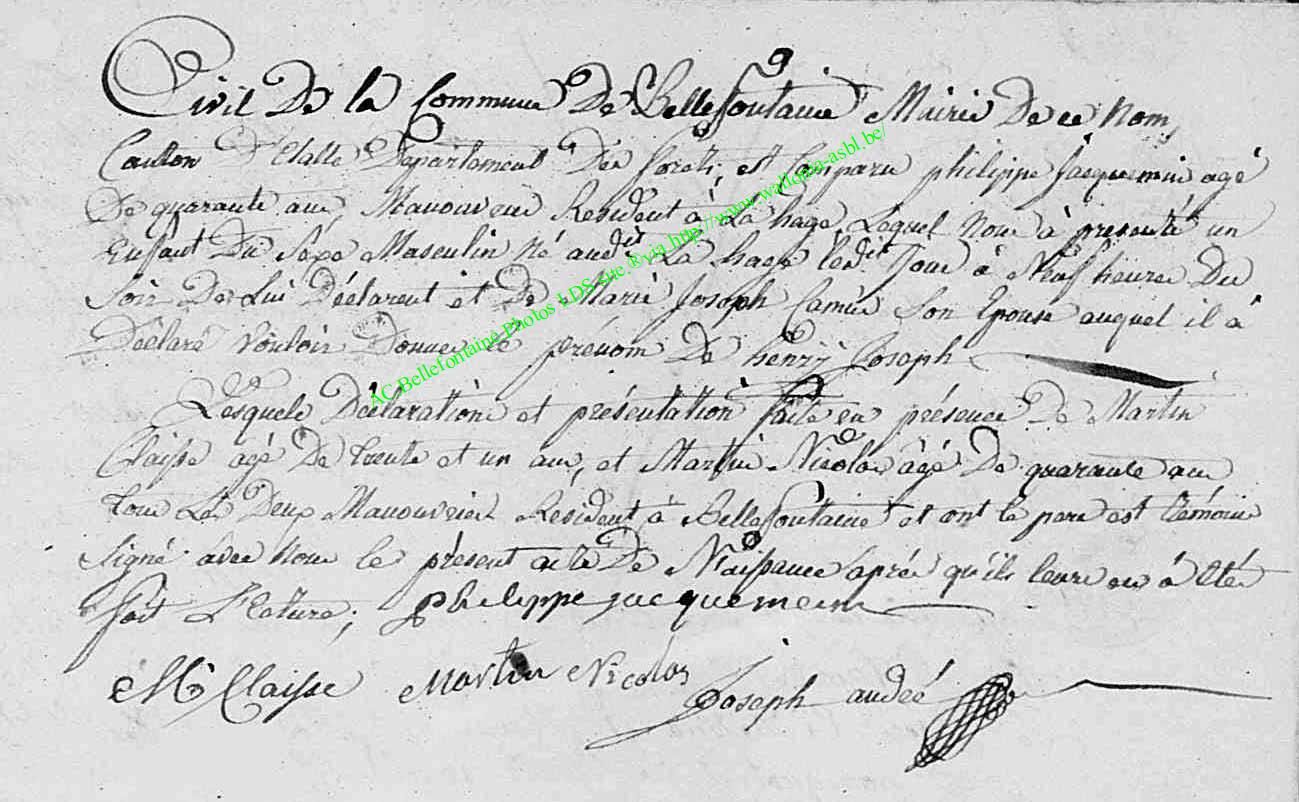 Civil De la Commune De Bellefontaine Mairie De ce Nom,
Canton D'Etalle Departement Des forets, est Comparu philippe Jacquemin agé
De quarante ans, Manouvrier Resident à La hage, Lequel Nous à presenté un
Enfant Du Sexe Masculin Né audit La hage ledit Jour à Neuf heures Du
Soir De Lui Déclarent et De Marie Joseph Camus Son Epouse auquel il à
Déclaré Vouloir Donner le prenom De henry Joseph
Lesquels Déclaration et présentation faite en présence De Martin
Claisse agé De trente et un ans, et Martin Nicolas âgé De quarante ans
tous Les Deux Manouvriers Resident à Bellefontaine et ont le pere et témoins
Signé avec Nous le présent acte De Naissance aprés qu'ils leurs en à été
fait L'ecture; Philippe jacquemein
M Claisse Martin Nicolas Joseph andré
AC Bellefontaine Photos LDS Site ®via http://www.wallonia-asbl.be/